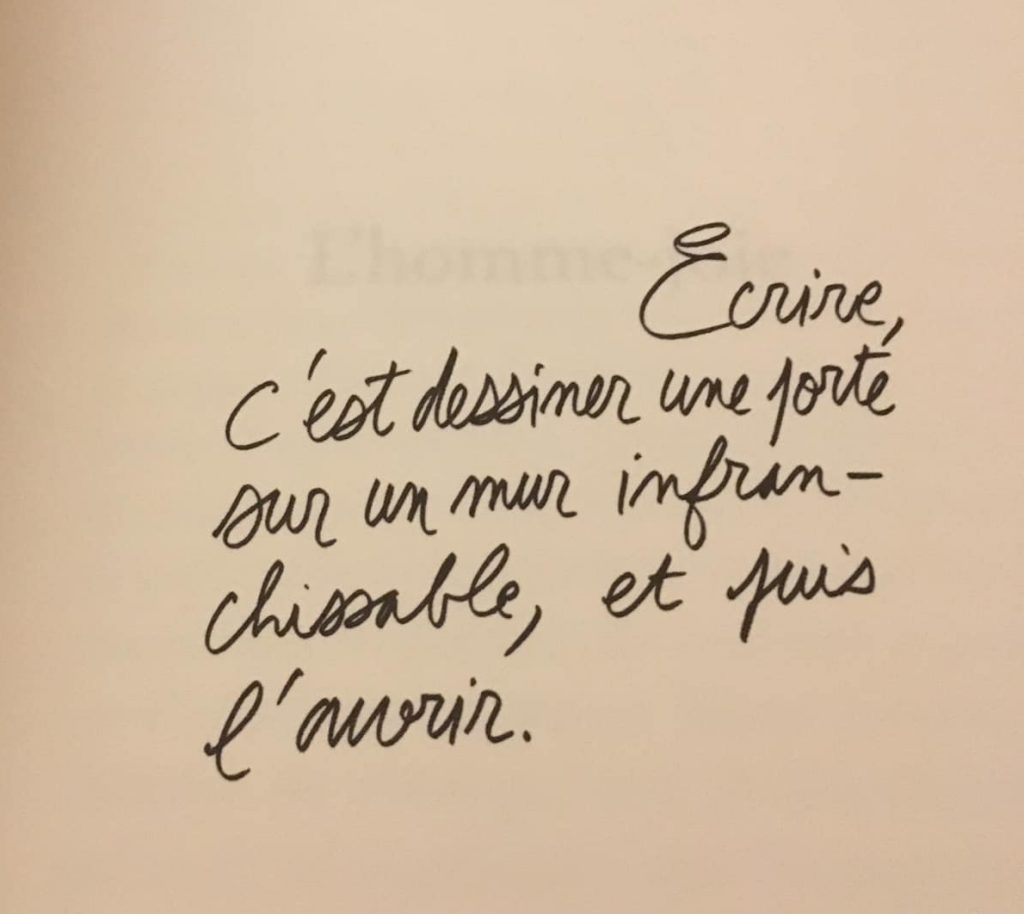 L'homme-joie
Écrire,
c'est dessiner une porte
sur un mur infran-
chissable, et puis
l'ouvrir.